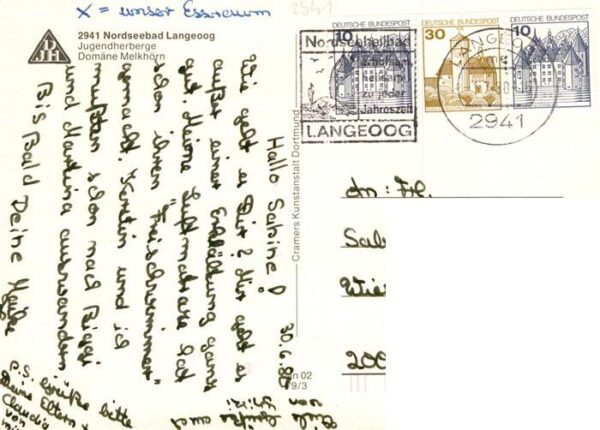 X = unser Essraum
2941
2941 Nordseebad Langeoog
Jugendherberge
Domäne Melkhörn
DJH
30.6.80
Hallo Sabine!
Wie geht es Dir? Mir geht es
außer einer Erkältung ganz
gut. Meine Luftmatraze hat
schon ihren "Freischwimmer"
gemacht. Kerstin und ich
mußten schon nach Biggi
und Martina auswandern
Bis Bald Deine
P.S. Grüße bitte
Deine Eltern +
Claudia
von
Viele Grüße auch
von
Cramers Kunstanstalt Dortmund
DEUTSCHE BUNDESPOST
10
DEUTSCHE BUNDESPOST
30
DEUTSCHE BUNDESPOST
10
Nordseeheilbad
heilsam
zu jeder
Jahreszeit
LANGEOOG
LANGEOO
2941
An: Frl.
Sab
Wie
200
n 02
9/3